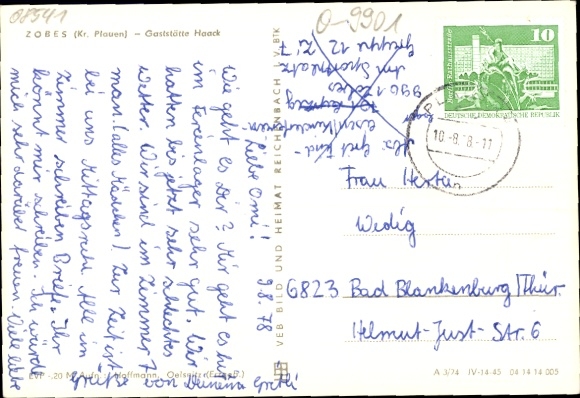 08541
O-9901
ZOBES (Kr. Plauen) – Gaststätte Haack
10
DEUTSCHE DEMOKRATISCHE REPUBLIK
10.-8.78-11
9.8.78
Liebe Omi!
Wie geht es Dir? Mir geht es hier
im Ferienlager sehr gut. Wir
hatten bis jetzt sehr schlechtes
Wetter. Wir sind im Zimmer 7
man. (alles Mädchen) Zur Zeit ist
bei uns Mittagsruhe. Alle im
Zimmer schreiben Briefe. Ihr
könnt mir schreiben. Ich würde
mich sehr darüber freuen. Viele liebe
Grüße von Deiner
Abs.
9901 Zobes
Am Sportplatz
Gruppe 12 Zi. 7
Frau Herta
Wedig
6823 Bad Blankenburg/Thür.
Helmut-Just-Str. 6
VEB BILD UND HEIMAT REICHENBACH I. V. BTK
EVP -.20 M Aufn.: Hoffmann, Oelsnitz (Erzgeb.)
A 3/74 IV-14-45 04 14 14 005